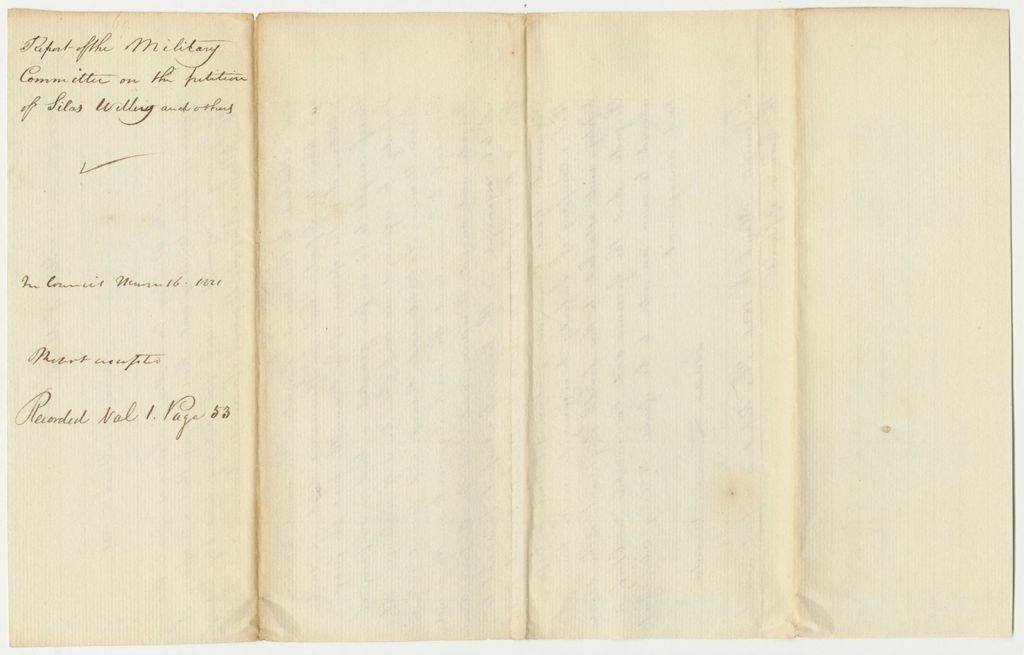 Report of the Military
Committee on the petition
of Silas and others
In Council March 16. 1821
Report accepted
Recorded Vol 1. Page 53